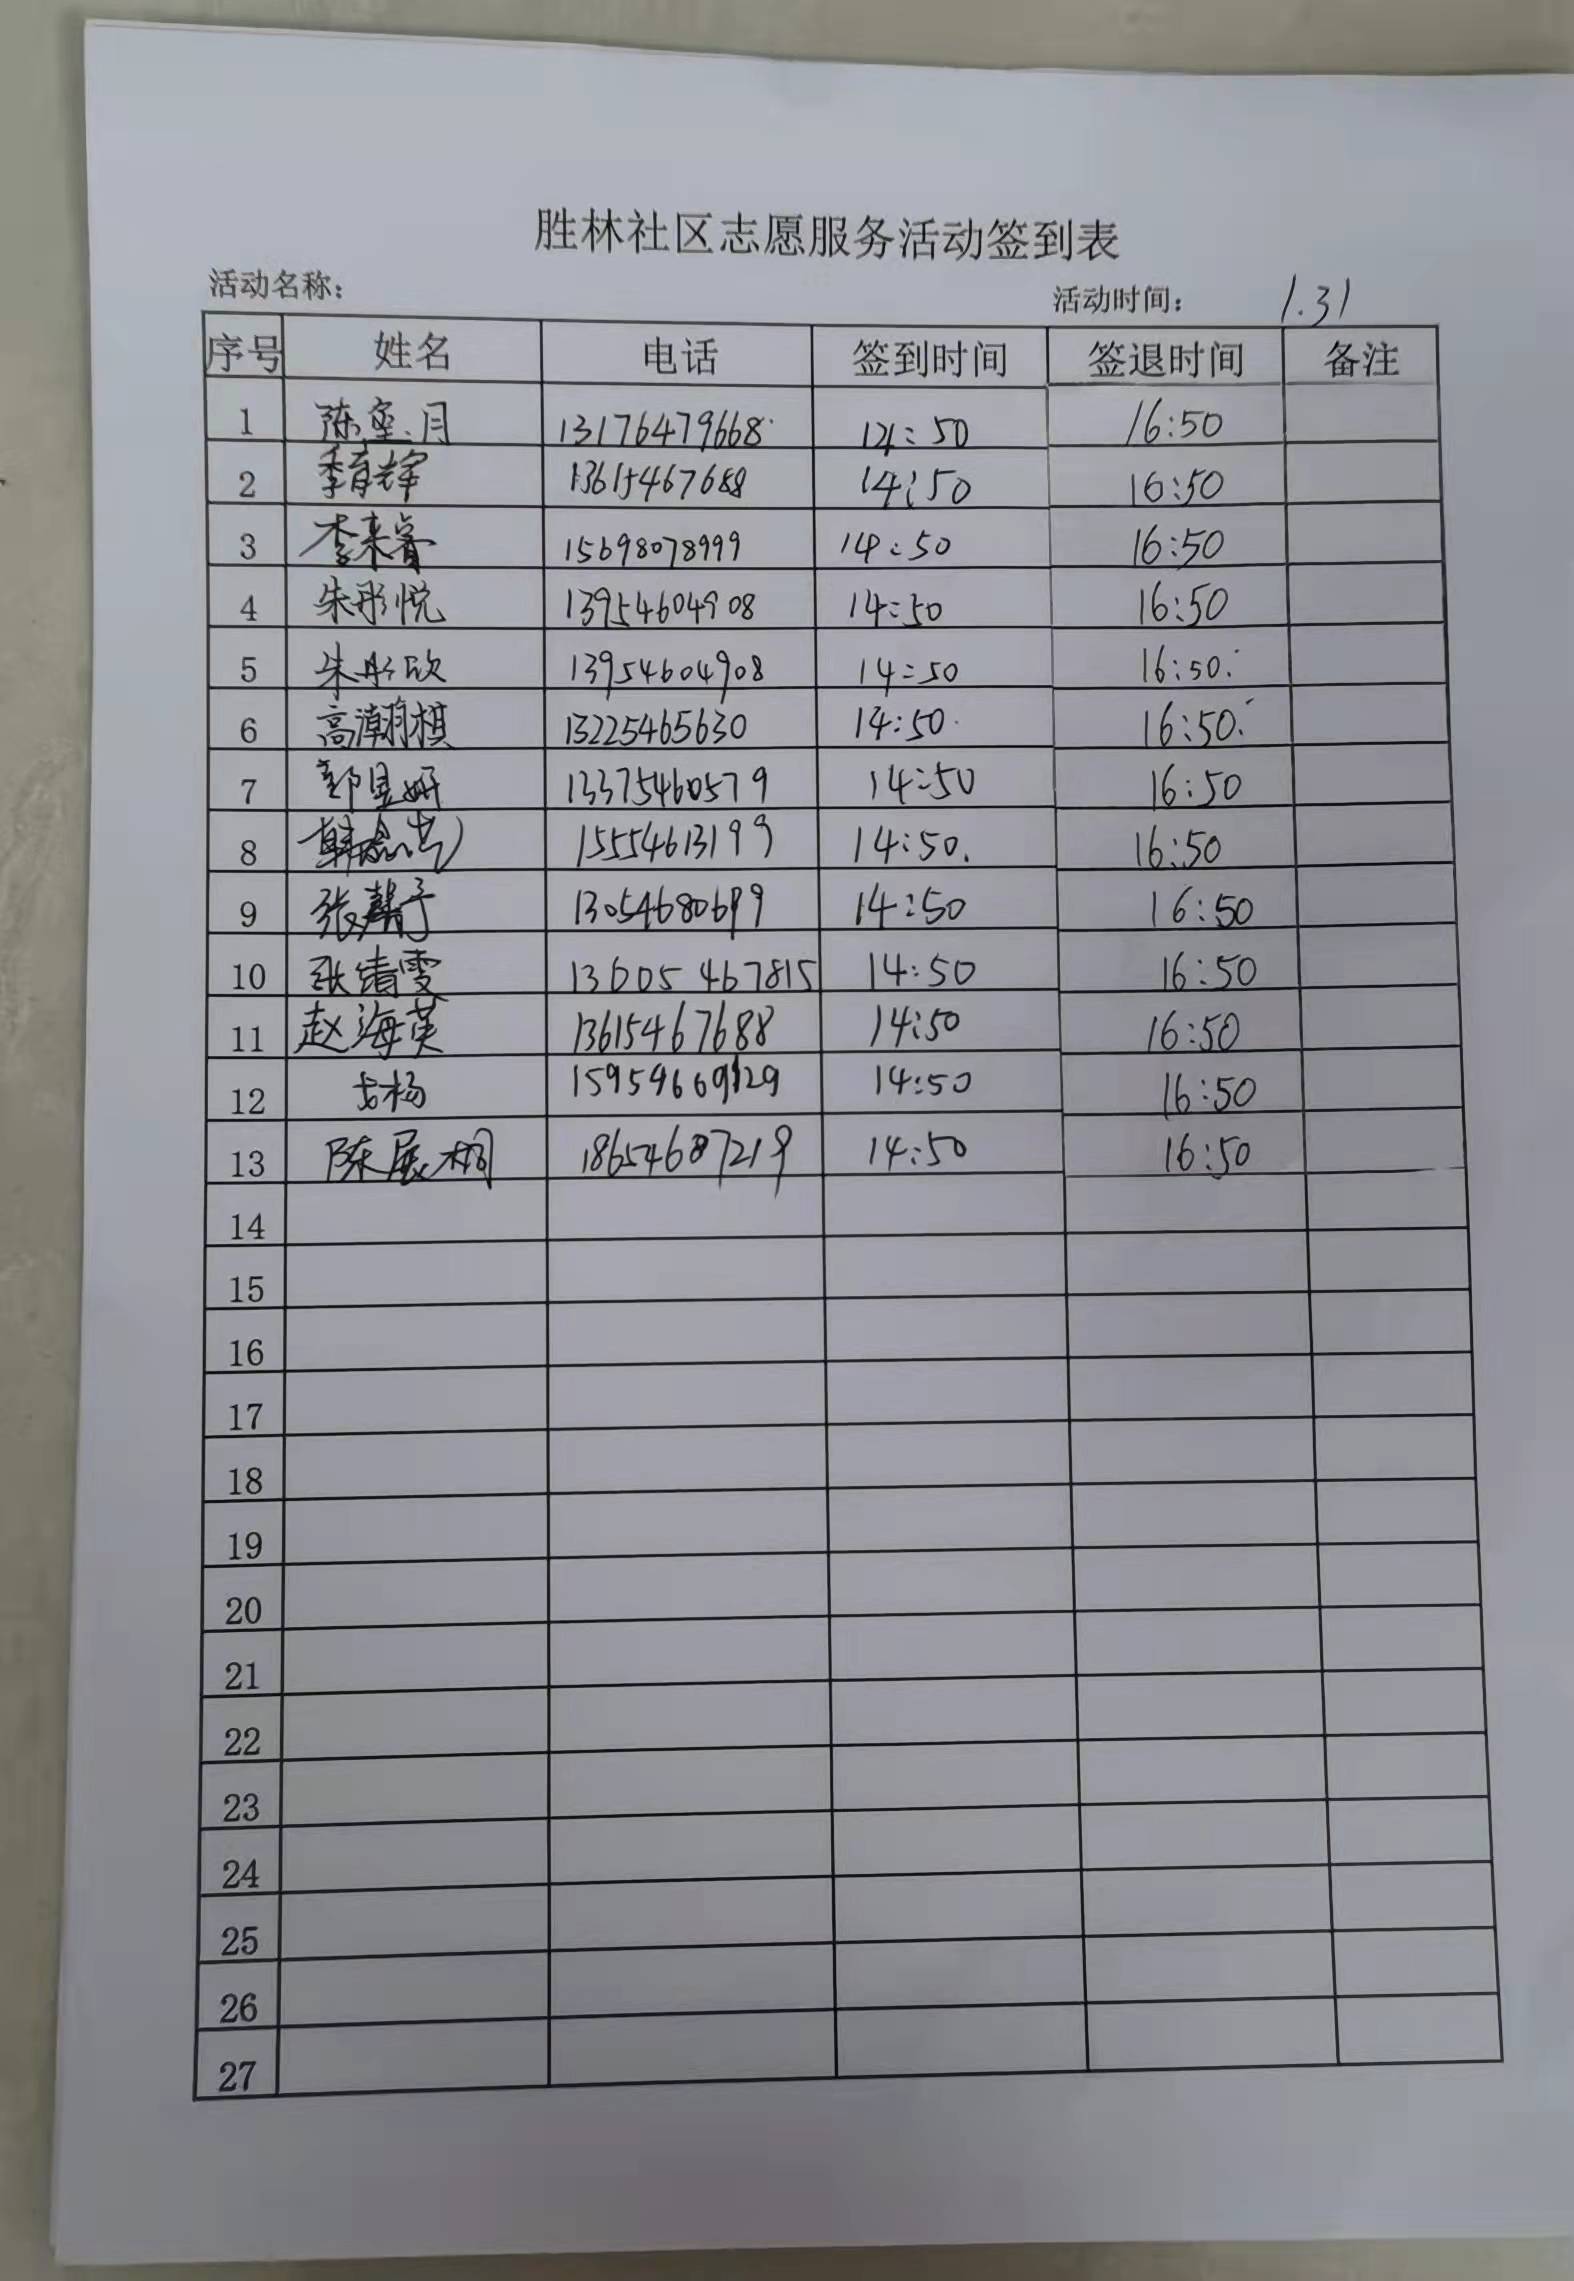 胜林社区志愿服务活动签到表
活动名称： 活动时间： 1.31
序号 姓名 电话 签到时间 签退时间 备注
1 陈 月 13176479668 14:50 16:50
2 季育辉 13615467688 14:50 16:50
3 李来睿 15698078999 14:50 16:50
4 朱彤悦 13954604908 14:50 16:50
5 朱彤欣 13954604908 14:50 16:50
6 高瀚棋 13225465630 14:50 16:50
7 郭昱妍 13375460579 14:50 16:50
8 韩 15554613199 14:50 16:50
9 张馨予 13054680699 14:50 16:50
10 张婧雯 13605467815 14:50 16:50
11 赵海英 13615467688 14:50 16:50
12 杨 14:50 16:50
13 陈展桐 14:50 16:50
14
15
16
17
18
19
20
21
22
23
24
25
26
27